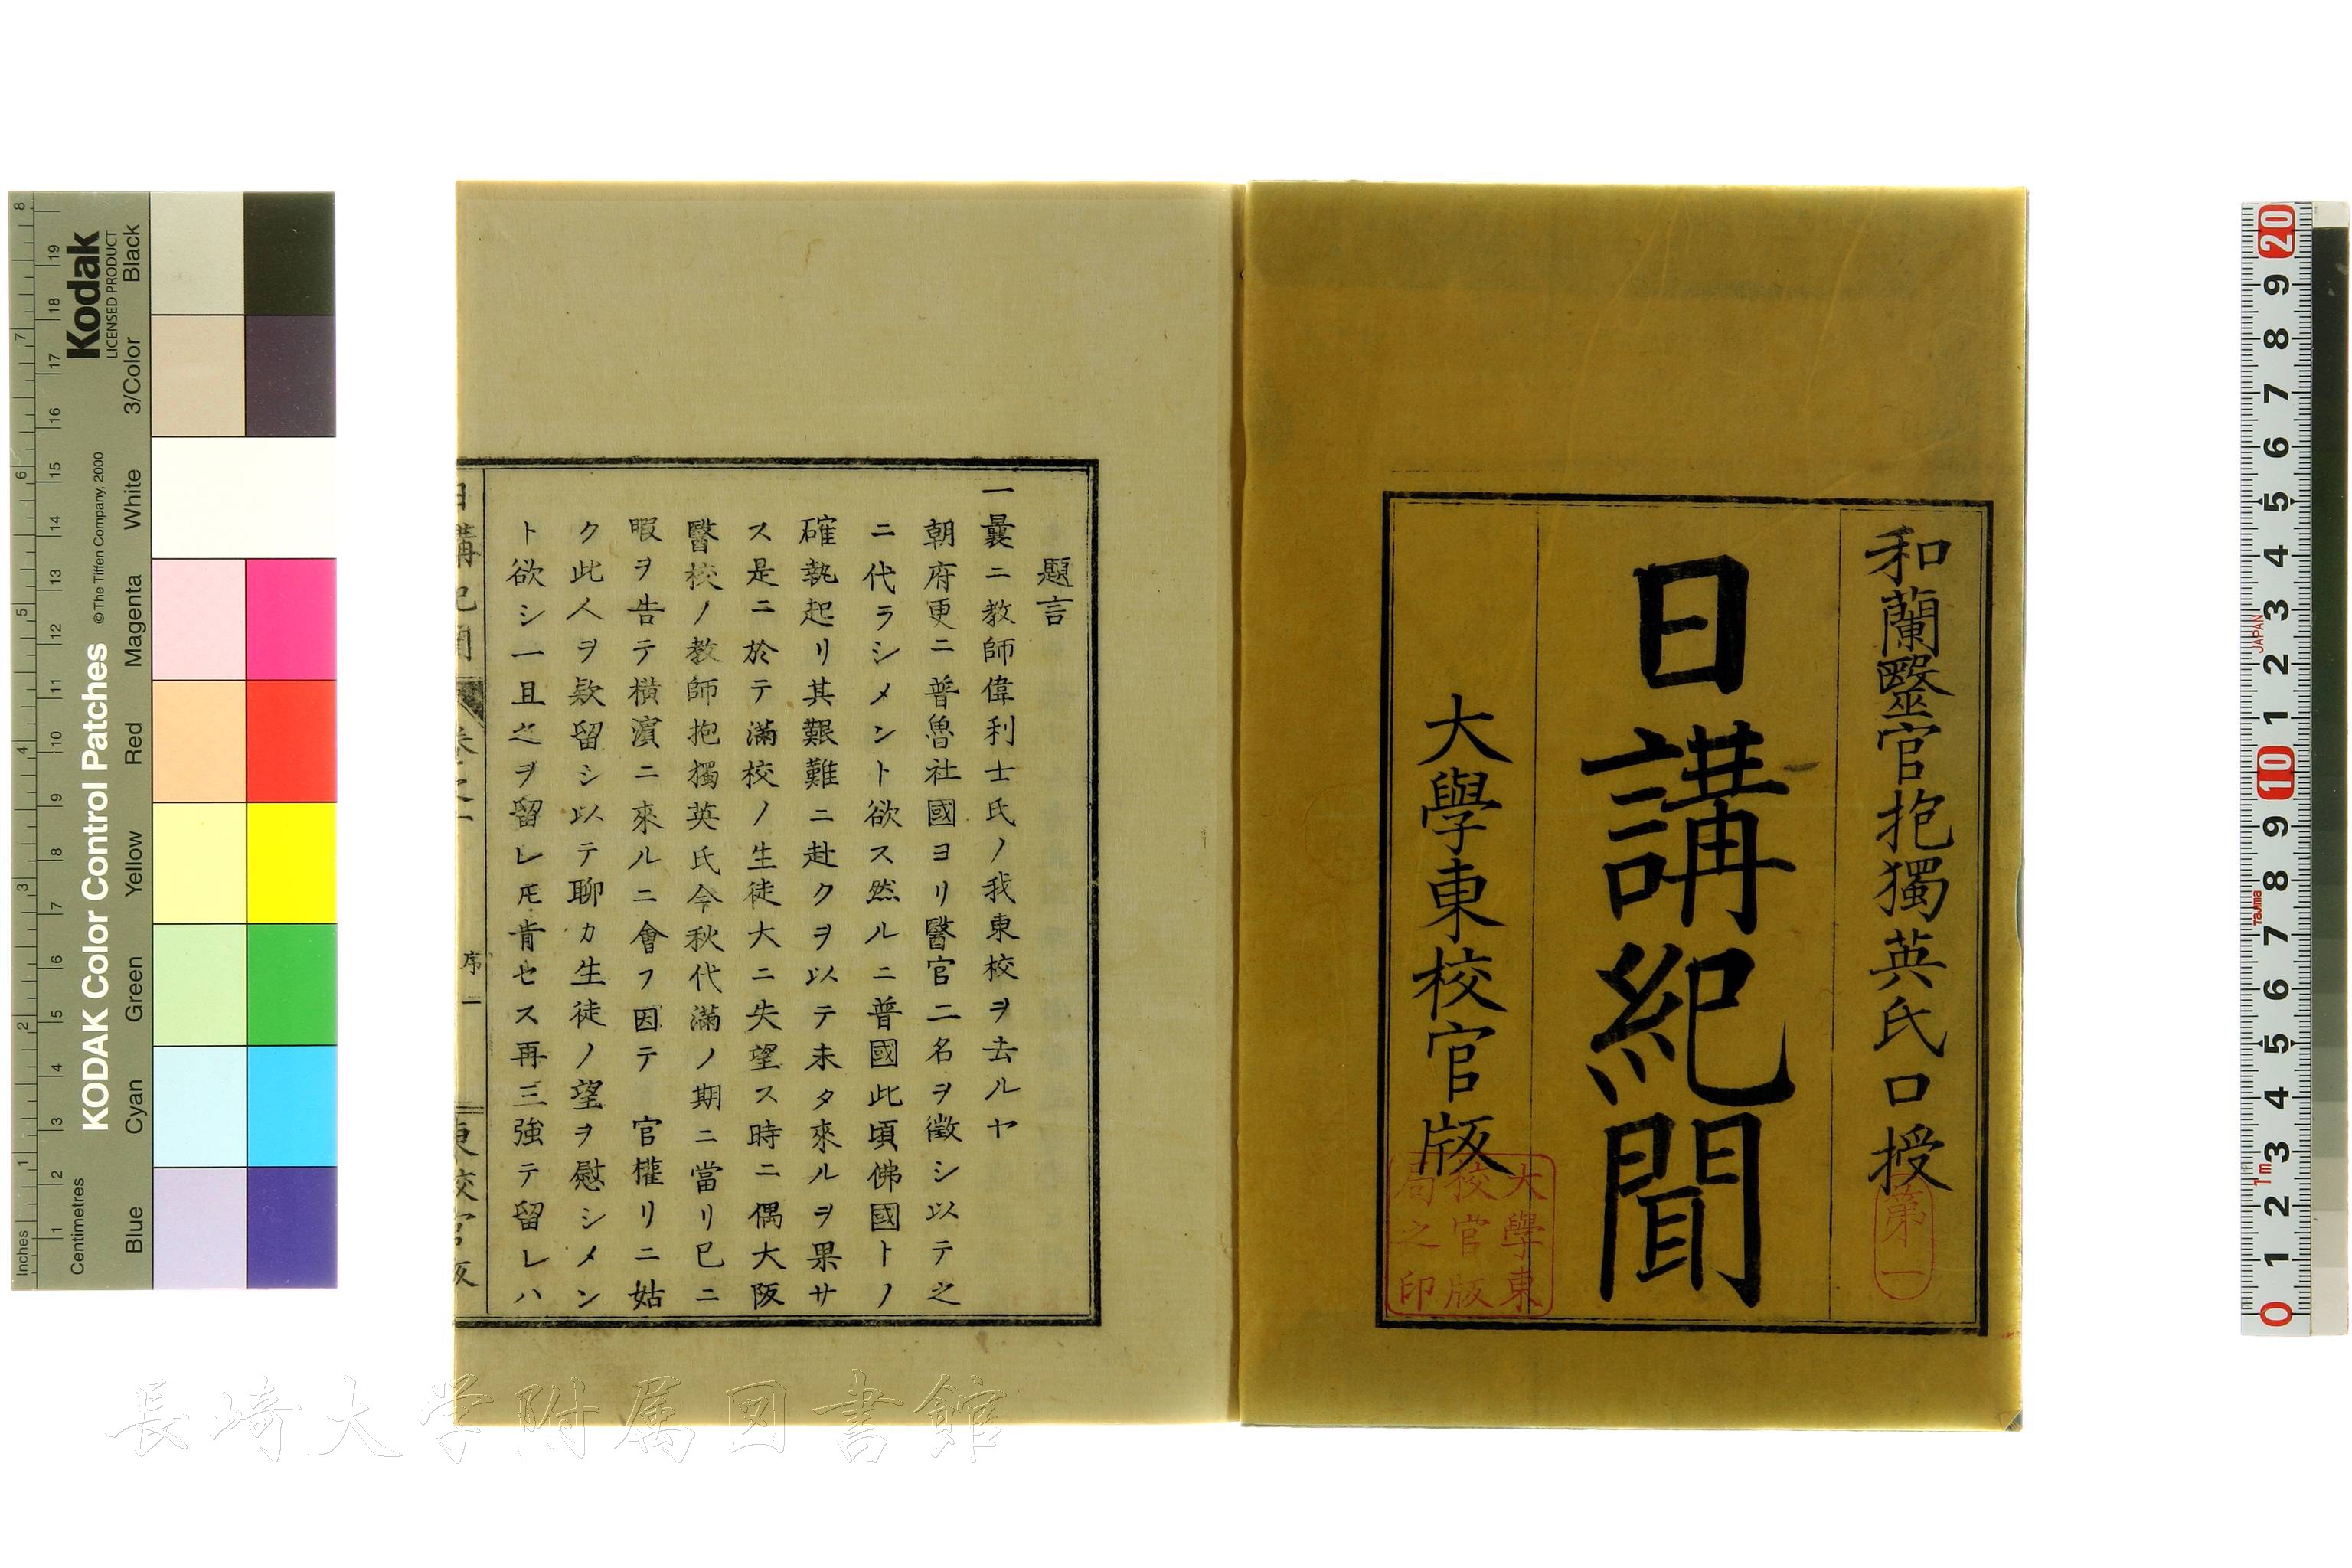 和蘭毉官抱獨英氏口授
第一
日講紀聞
大學東校官版
大學東
校官版
局之印
題言
一曩ニ教師偉利士氏ノ我東校ヲ去ルヤ
朝府更ニ普魯社國ヨリ醫官二名ヲ徴シ以テ之
ニ代ラシメント欲ス然ルニ普國此頃佛國トノ
確執起リ其艱難ニ赴クヲ以テ未タ來ルヲ果サ
ス是ニ於テ滿校ノ生徒大ニ失望ス時ニ偶大阪
醫校ノ教師抱獨英氏今秋代滿ノ期ニ當リ已ニ
暇ヲ告テ横濵ニ來ルニ會フ因テ 官權リニ姑
ク此人ヲ欵留シ以テ聊カ生徒ノ望ヲ慰シメン
ト欲シ一且之ヲ留レ𪜈肯セス再三強テ留レハ
日講紀聞
序一
東校官版
長崎大学附属図書館
Kodak
LICENSED PRODUCT
KODAK Color Control Patches
© The Tiffen Company, 2000
Inches
Centimetres
1 2 3 4 5 6 7 8
1 2 3 4 5 6 7 8 9 10 11 12 13 14 15 16 17 18 19
Blue
Cyan
Green
Yellow
Red
Magenta
White
3/Color
Black
0 1 2 3 4 5 6 7 8 9 10 1 2 3 4 5 6 7 8 9 20
1m
Tajima
JAPAN